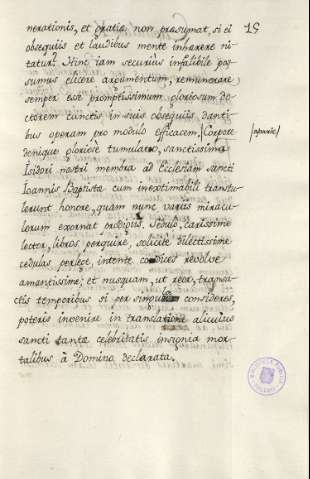 15
nerationis, et gratia non præsumat, si ei
obsequiis et laudibus mente inhærere ni-
tatur? Hinc iam securius infalibile pos-
sumus elicere argumentum, remunerare
semper esse promptissimum gloriosum do-
ctorem cunctis in suis obsequiis danti-
bus operam pro modulo efficacem. Corpore
denique gloriose tumulato, sanctissima
Isidori nostri membra ad Ecclesiam sancti
Ioannis Baptistæ cum inextimabili transtu-
lerunt honore, quam nunc variis miracu-
lorum exornat prodigiis. Sedulo, carissime
lector, libros perquire, solicite dilectissime
cedulas perlege, intente codices revolve
amantissime; et nusquam, ut reor, transa-
ctis temporibus si per singula consideres,
poteris invenire in translatione alicuius
sancti tantæ celebritatis insignia mor-
talibus à Domino declarata.